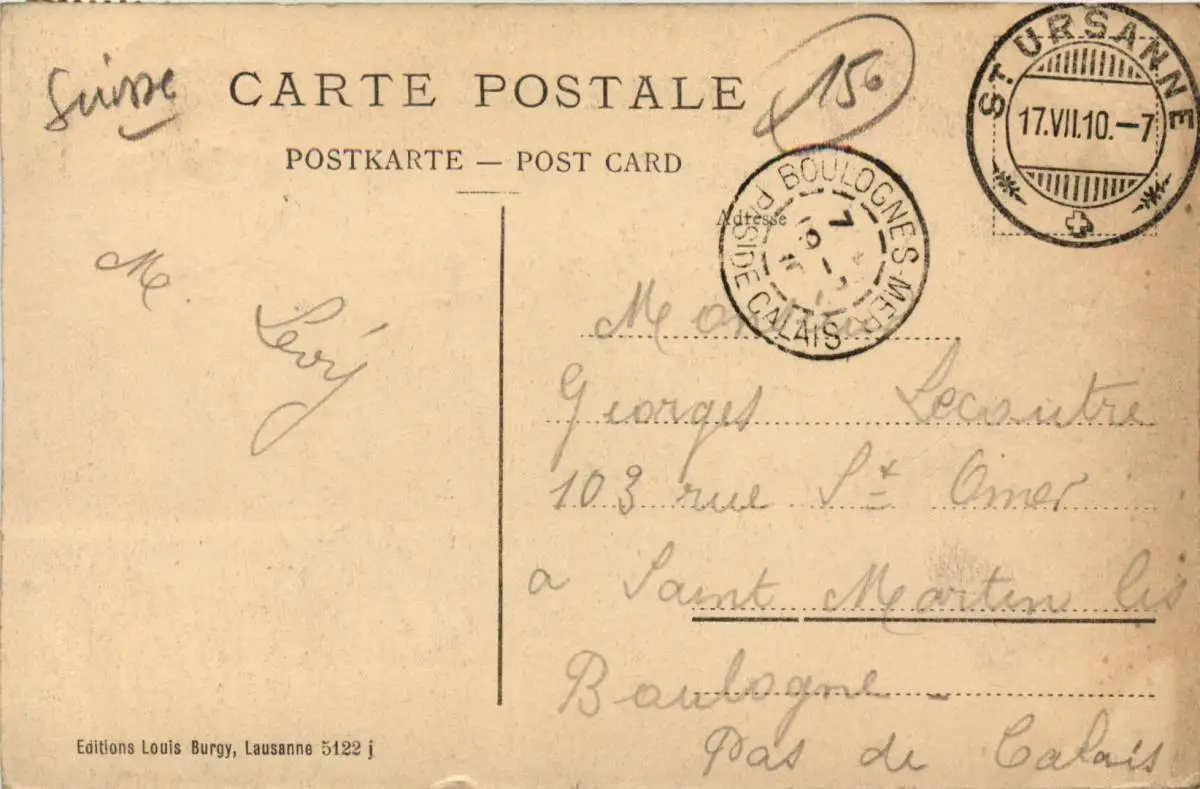 Suisse
CARTE POSTALE
150
POSTKARTE — POST CARD
ST URSANNE
17.VII.10.—7
BOULOGNE-S-MER
PAS DE CALAIS
Adresse
M. Levy
Monsieur
Georges Lecoutre
103 rue St Omer
a Saint Martin lis
Boulogne -
Pas de Calais
Editions Louis Burgy, Lausanne 5122 j